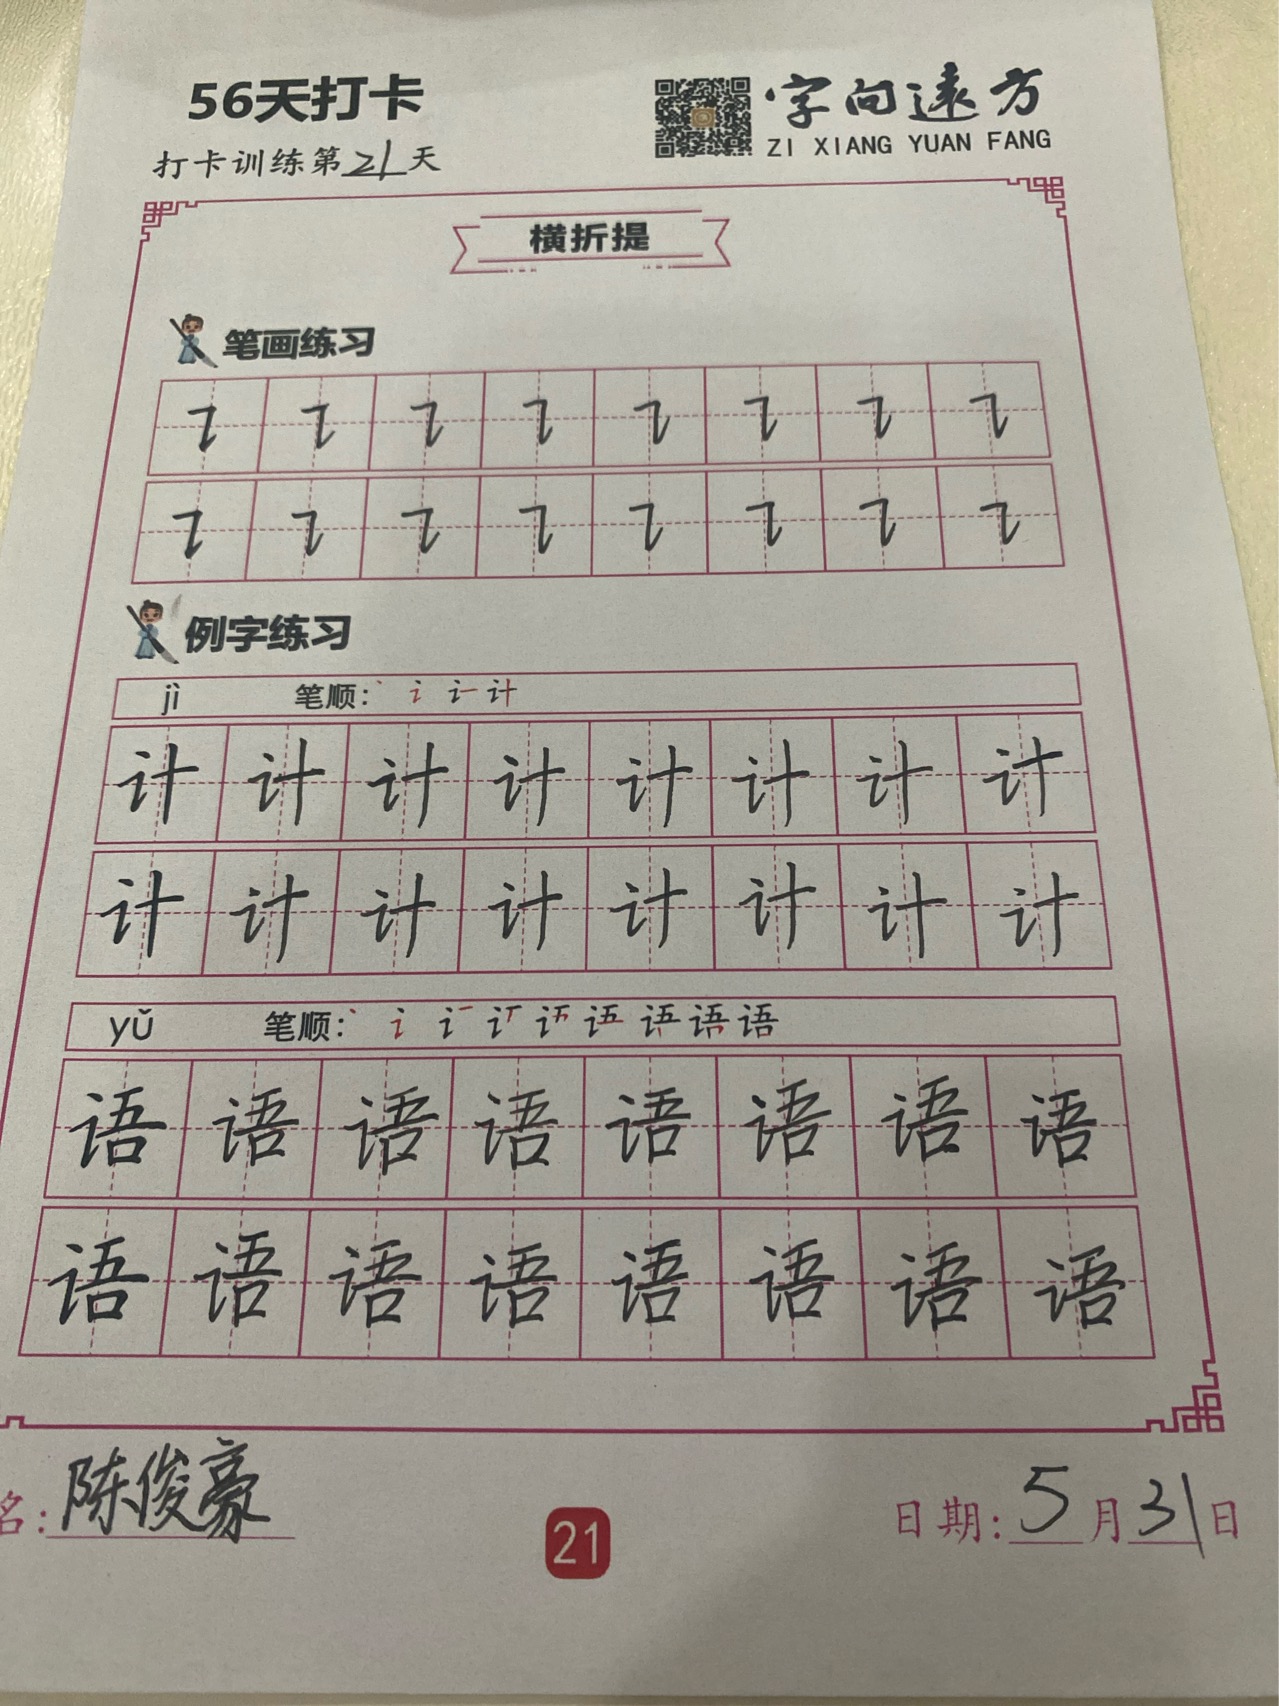 56天打卡
字向远方
ZI XIANG YUAN FANG
打卡训练第21天
横折提
笔画练习
㇊ ㇊ ㇊ ㇊ ㇊ ㇊ ㇊ ㇊
㇊ ㇊ ㇊ ㇊ ㇊ ㇊ ㇊ ㇊
例字练习
jì 笔顺: 丶 讠 计
计 计 计 计 计 计 计 计
计 计 计 计 计 计 计 计
yǔ 笔顺: 丶 讠 语
语 语 语 语 语 语 语 语
语 语 语 语 语 语 语 语
名: 陈俊豪
21
日期: 5月31日